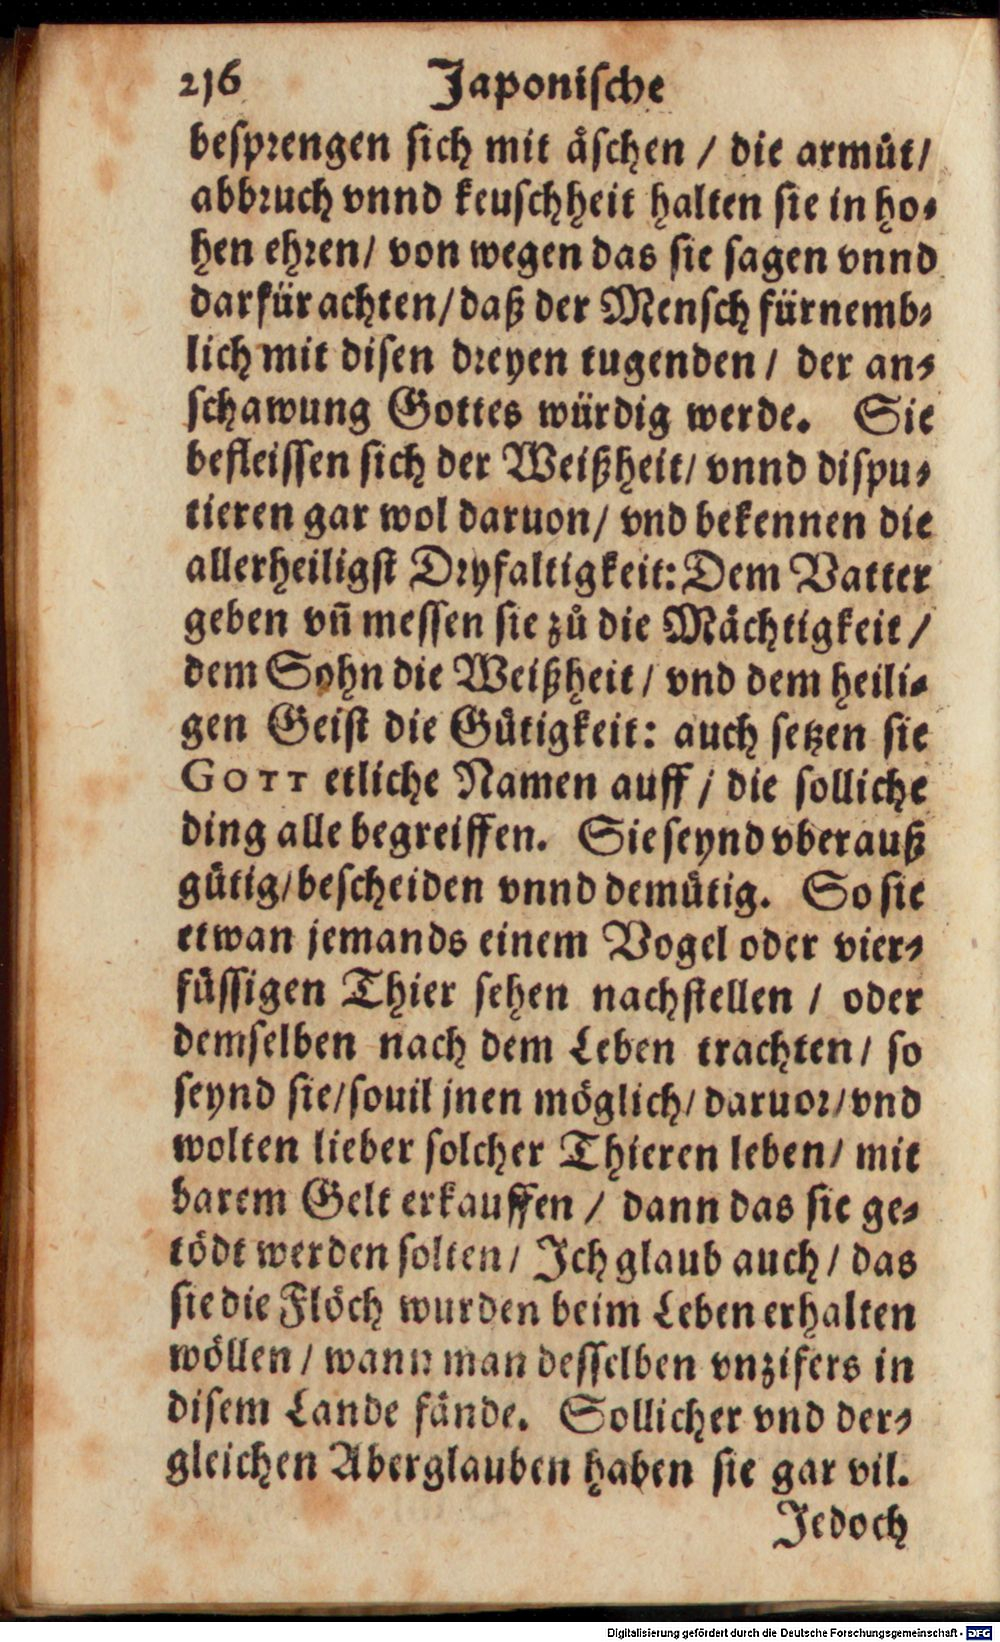 216 Japonische
besprengen sich mit äschen / die armůt/
abbruch vnnd keuschheit halten sie in ho-
hen ehren/ von wegen das sie sagen vnnd
darfür achten/ daß der Mensch fürnemb-
lich mit disen dreyen tugenden / der an-
schawung Gottes würdig werde. Sie
befleissen sich der Weißheit/ vnnd dispu-
tieren gar wol daruon/ vnd bekennen die
allerheiligst Dryfaltigkeit: Dem Vatter
geben vñ messen sie zů die Mächtigkeit /
dem Sohn die Weißheit / vnd dem heili-
gen Geist die Gütigkeit: auch setzen sie
GOTT etliche Namen auff / die solliche
ding alle begreiffen. Sie seynd vberauß
gütig/ bescheiden vnnd demütig. So sie
etwan jemands einem Vogel oder vier-
füssigen Thier sehen nachstellen / oder
demselben nach dem Leben trachten / so
seynd sie/ souil jnen möglich/ daruor/ vnd
wolten lieber solcher Thieren leben/ mit
barem Gelt erkauffen / dann das sie ge-
tödt werden solten / Ich glaub auch / das
sie die Flöch wurden beim Leben erhalten
wöllen / wann man desselben vnzifers in
disem Lande fände. Sollicher vnd der-
gleichen Aberglauben haben sie gar vil.
Jedoch
Digitalisierung gefördert durch die Deutsche Forschungsgemeinschaft - DFG